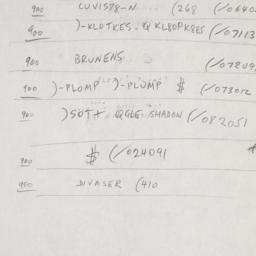 900 LUV1578-N (268 (/0640
900 )-KLOTKES. QKL80PK8ES (/07113
900 BRUNENS (/07809
900 )-PLOMP )-PLUMP $ (/073012
900 )50TH QGLE SHADOW (/082051
900 $ (/024091
900 DIVASER (410